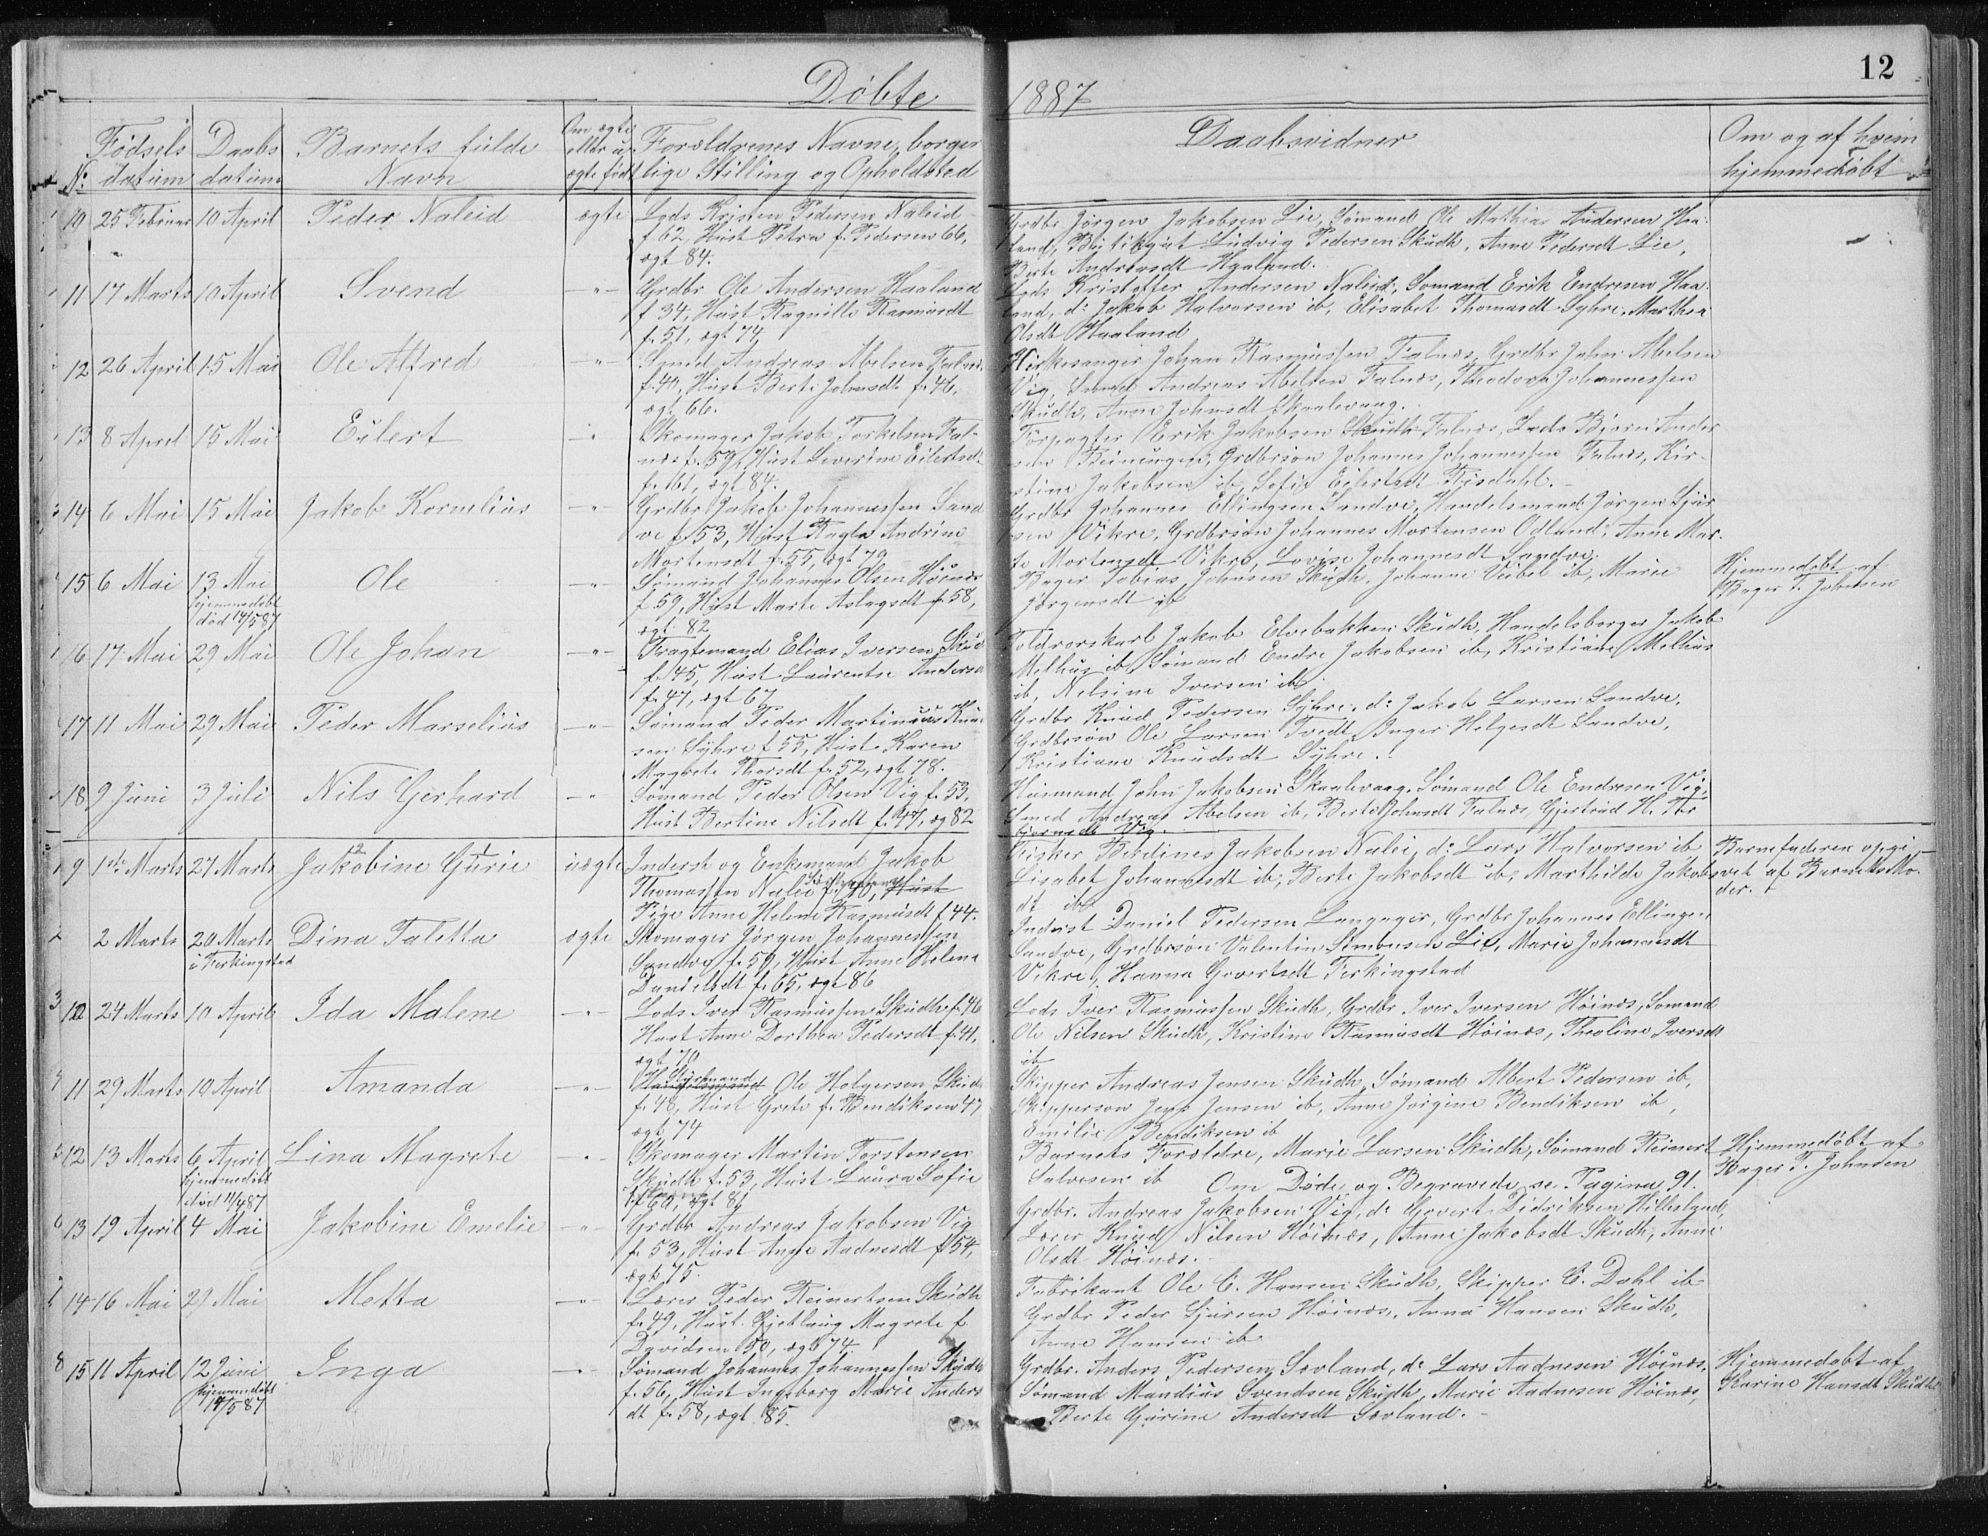 12
Døbte 1887
No Fødsels datum
Daabs datum
Barnets fulde Navn
Om ægte eller u- ægte født
Forældrenes Navne, borger lige Stilling og Opholdsted
Daabsvidner
Om og af hvem hjemmedøbt
10 25 Februar 10 April Peder Naleid ægte Lods Kristen Pedersen Naleid
f. 62, Hust Petra f. Pedersen 66,
ægt 84.
Grdbr Jørgen Jakobsen Lie, Sømand Ole Mathias Andersen Haa-
land, Ludvig Pedersen Skudh, Anne Pedersdt Lie,
Berte Andreasdt Haaland.
11 17 Marts 10 April Svend -"- Grdbr Ole Andersen Haaland
f 34, Hust Ragnille Rasmusdt
f. 51, ægt 74
Lods Kristoffer Andersen Naleid, Sømand Erik Endresen Haa-
land, d: Jakob Halvorsen ib, Elisabet Thomasdt Syhre, Marthea
Olsdt Haaland
12 26 April 15 Mai Ole Alfred -"- Smed Andreas Abelsen Falnæs
f. 40, Hust Berte Johnsdt f. 46,
ægt 66.
Kirkesanger Johan Rasmussen Falnæs, Grdbr John Abelsen
Vig, Smed Andreas Abelsen Falnæs, Theodora Johannessen
Skudh, Anne Johnsdt Skaalevaag.
13 8 April 15 Mai Eilert -"- Skomager Jakob Torkelsen Fal-
næs f. 59, Hust Severine Eilertsdt
f. 61, ægt 84.
Forpagter Erik Jakobsen Skudh Falnæs, Lods Bjørn Ander
sen Beiningen, Grdbrsøn Johannes Johannessen Falnæs, Kir-
stine Jakobsen ib, Sofie Eilertsdt Risdahl.
14 6 Mai 15 Mai Jakob Kornelius -"- Grdbr Jakob Johannessen Sand
ve f. 53, Hust Ragla Andrine
Mortensdt f. 55, ægt 79
Grdbr Johannes Ellingsen Sandve, Handelsmand Jørgen Sjur
sen Vikre, Grdbrsøn Johannes Mortensen Odland, Anne Mar-
te Mortensdt Vikre, Lovise Johannesdt Sandve.
15 6 Mai 13 Mai Ole -"- Sømand Johannes Olsen Høinæs
hjemmedøbt død 14/5 87
f. 59, Hust Marte Aslagsdt f. 58,
ægt 82
Bager Tobias Johnsen Skudh, Johanne Vibel ib, Marie
Jørgensdt ib
Hjemmedøbt af
Bager T. Johnsen
16 17 Mai 29 Mai Ole Johan -"- Fragtemand Elias Iversen Skud
f. 45, Hust Laurentse Andersd
f. 47, ægt 67
Toldrorskarl Jakob Elvebakken Skudh, Handelsborger Jakob
Melhus ib, Sømand Endre Jakobsen ib, Kristiane Melhus
ib, Nelsine Iversen ib
17 11 Mai 29 Mai Peder Marselius -"- Sømand Peder Martinius Knud
sen Syhre f. 55, Hust. Karen
Magrete Thorsdt f. 52, ægt 78.
Grdbr Knud Pedersen Syhre, d: Jakob Larsen Sandve,
Grdbrsøn Ole Larsen Tvedt, Inger Helgesdt Sandve,
Kristiane Knudsdt Syhre.
18 9 Juni 3 Juli Nils Gerhard -"- Sømand Peder Olsen Vig f. 53,
Hust Bertine Nilsdt f. 47, ægt 82
Husmand John Jakobsen Skaalevaag, Sømand Ole Endresen Vig,
Smed Andreas Abelsen ib, Berte Johnsdt Falnæs, Gjertrud H. Tor
bjørnsdt Vig.
1 9 1ste Marts 27 Marts Jakobine Gurie uægte Inderst og Enkemand Jakob
Thomassen Nalei f. 40, Hust
Pige Anne Helene Rasmusdt f 44.
Fisker Berdines Jakobsen Nalei, d: Lars Halvorsen ib
Lisabet Johannesdt ib, Berte Jakobsdt ib, Marthilde Jakobs
dt ib
Barnefaderen opgi
vet af Barnets Mo-
der.
2 2 Marts 20 Marts i Ferkingstad Dina Taletta ægte Skomager Jørgen Johannessen
Sandve f. 59, Hust Anne Helena
Danielsdt f. 65, ægt 86
Inderst Daniel Pedersen Langager, Grdbr Johannes Ellingsen
Sandve, Grdbrsøn Valentin Simonsen Lie, Marie Johannesdt
Vikre, Hanna Govertsdt Ferkingstad
3 10 24 Marts 10 April Ida Malene -"- Lods Iver Rasmussen Skudh f. 46
Hust Anne Dorthea Pedersdt f. 41,
ægt 70
Lods Iver Rasmussen Skudh, Grdbr Iver Iversen Høinæs, Sømand
Ole Nilsen Skudh, Kristine Rasmusdt Høinæs, Theoline Iversdt
ib
4 11 29 Marts 10 April Amanda -"- Styrmand Ole Holgersen Skudh
f. 48, Hust Grete f. Bendiksen 47
ægt 74
Skipper Andreas Jensen Skudh, Sømand Albert Pedersen ib,
Skippersøn Jens Jensen ib, Anne Jørgine Bendiksen ib,
Emilie Bendiksen ib
5 12 13 Marts 6 April Lina Magrete -"- Skomager Martin Torstensen
hjemmedøbt død 11/4 87
Skudh f. 53, Hust Laura Sofie
f 60, ægt 81
Barnets Forældre, Marie Larsen Skudh, Sømand Reinert
Salvesen ib Om Døde og Begravede se Pagina 91.
Hjemmedøbt af
Bager T. Johnsen
6 13 19 April 4 Mai Jakobine Emelie -"- Grdbr Andreas Jakobsen Vig
f. 53, Hust Anne Aadnesdt f 54,
ægt 75.
Grdbr. Andreas Jakobsen Vig, d: Govert Didriksen Hillesland,
Lærer Knud Nilsen Høinæs, Anne Jakobsdt Skudh, Anne
Olsdt Høinæs.
7 14 16 Mai 29 Mai Metta -"- Lærer Peder Reinertsen Skudh
f. 49, Hust. Gjeblaug Magrete f.
Davidsen 50, ægt 74
Fabrikant Ole C. Hansen Skudh, Skipper C. Dahl ib
Grdbr Peder Sjursen Høinæs, Anna Hansen Skudh,
Anne Hansen ib
8 15 11 April 12 Juni Inga -"- Sømand Johannes Johannessen Skudh
hjemmedøbt 14/5 87
f. 56, Hust Ingeborg Marie Anders
dt f. 58, ægt 85.
Grdbr. Anders Pedersen Sævland, d: Lars Aadnesen Høinæs,
Sømand Mandius Svendsen Skudh, Marie Aadnesen Høinæs,
Berte Gurine Andersdt Sævland.
Hjemmedøbt af
Karine Hansdt Skudh